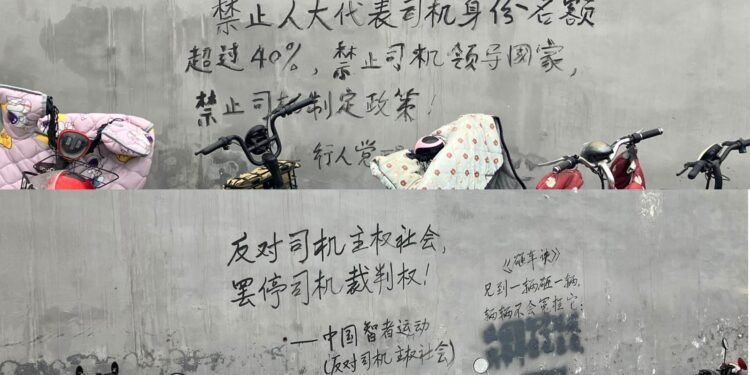 禁止人大代表司机身份名额
超过40%，禁止司机领导国家，
禁止司机制定政策！
行人党
反对司机主权社会，
罢停司机裁判权！
·——中国智者运动
(反对司机主权社会)
《砸车诀》
见到一辆砸一辆，
辆辆不会冤枉它；